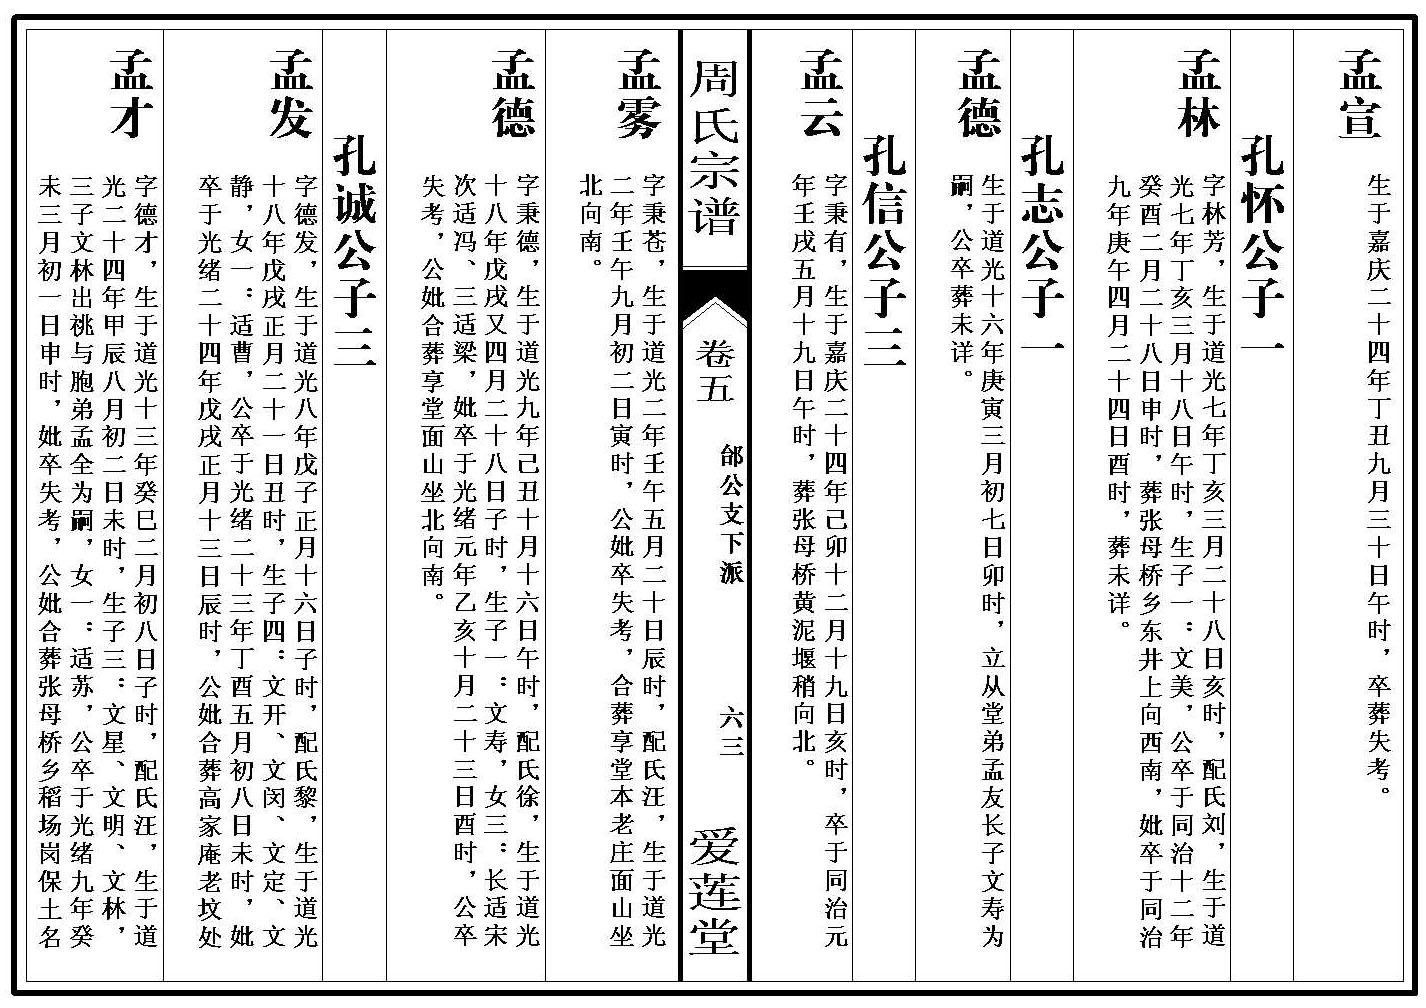 孟宣
生于嘉庆二十四年丁丑九月三十日午时，卒葬失考。
孔怀公子一
孟林
字林芳，生于道光七年丁亥三月二十八日亥时，配氏刘，生于道
光七年丁亥三月十八日午时，生子一：文美，公卒于同治十二年
癸酉二月二十八日申时，葬张母桥乡东井上向西南，妣卒于同治
九年庚午四月二十四日酉时，葬未详。
孔志公子一
孟德
生于道光十六年庚寅三月初七日卯时，立从堂弟孟友长子文寿为
嗣，公卒葬未详。
孔信公子三
孟云
字秉有，生于嘉庆二十四年己卯十二月十九日亥时，卒于同治元
年壬戌五月十九日午时，葬张母桥黄泥堰稍向北。
周氏宗谱
卷五
邰公支下派
六三
爱莲堂
孟雾
字秉苍，生于道光二年壬午五月二十日辰时，配氏汪，生于道光
二年壬午九月初二日寅时，公妣卒失考，合葬享堂本老庄面山坐
北向南。
孟德
字秉德，生于道光九年己丑十月十六日午时，配氏徐，生于道光
十八年戊戌又四月二十八日子时，生子一：文寿，女三：长适宋
次适冯、三适梁，妣卒于光绪元年乙亥十月二十三日酉时，公卒
失考，公妣合葬享堂面山坐北向南。
孔诚公子三
孟发
字德发，生于道光八年戊子正月十六日子时，配氏黎，生于道光
十八年戊戌正月二十一日丑时，生子四：文开、文闵、文定、文
静，女一：适曹，公卒于光绪二十三年丁酉五月初八日未时，妣
卒于光绪二十四年戊戌正月十三日辰时，公妣合葬高家庵老坟处
孟才
字德才，生于道光十三年癸巳二月初八日子时，配氏汪，生于道
光二十四年甲辰八月初二日未时，生子三：文星、文明、文林，
三子文林出祧与胞弟孟全为嗣，女一：适苏，公卒于光绪九年癸
未三月初一日申时，妣卒失考，公妣合葬张母桥乡稻场岗保土名